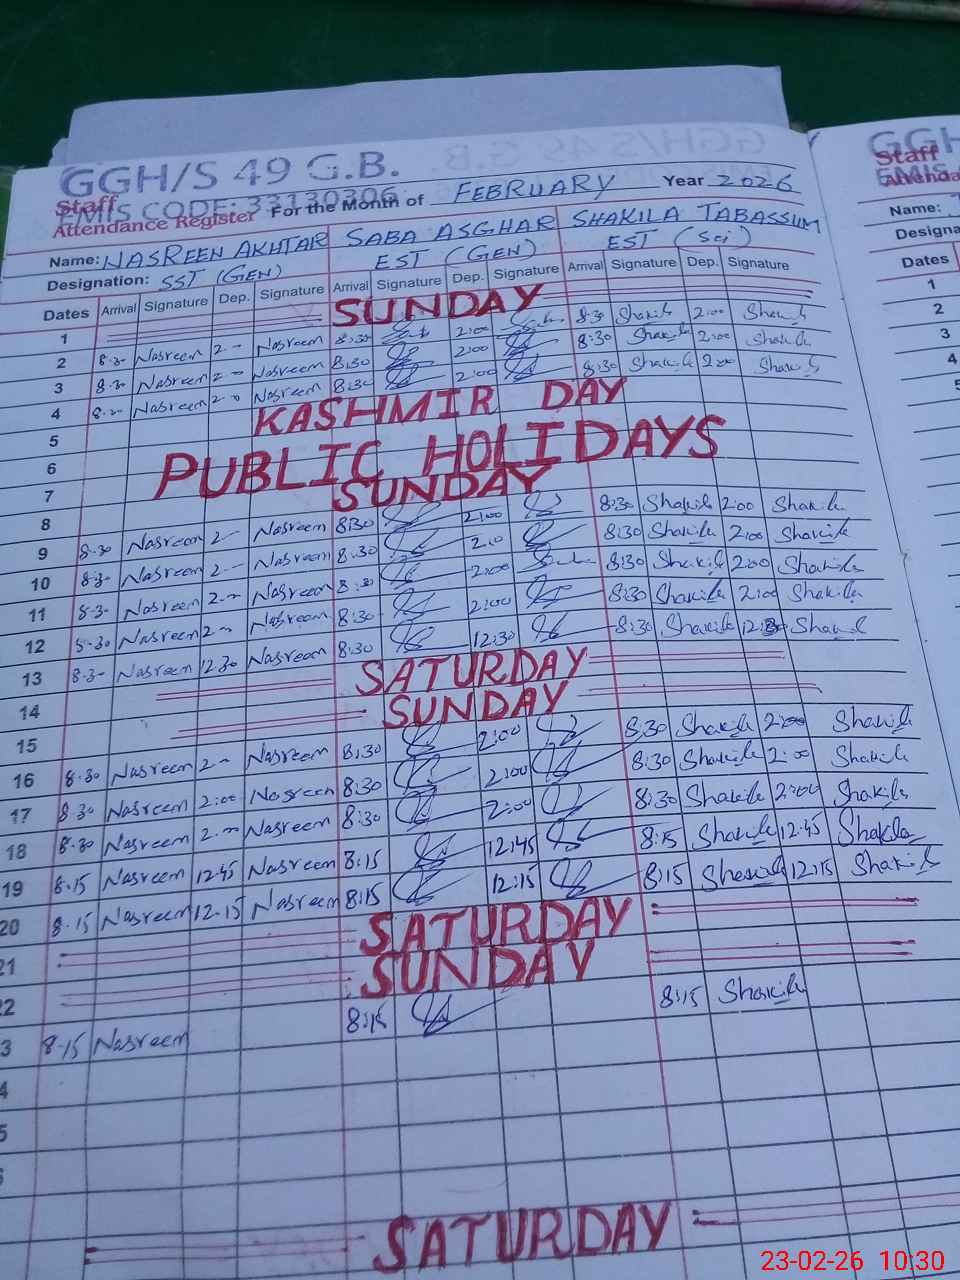 GGH/S 49 G.B.
EMIS CODE: 33130306
Staff
Attendance Register For the Month of FEBRUARY Year 2026
Name: NASREEN AKHTAR SABA ASGHAR SHAKILA TABASSUM
Designation: SST (GEN) EST (GEN) EST (Sci)
Dates Arrival Signature Dep. Signature Arrival Signature Dep. Signature Arrival Signature Dep. Signature
1 SUNDAY
2 8.30 Nasreen 2.- Nasreen 8:30 2:00 8:30 Shakila 2:00 Shakila
3 8.30 Nasreen 2.- Nasreen 8:30 2:00 Shakila 2:00 Shakila
4 8.30 Nasreen 2.- Nasreen 8:30 2:00 8:30 Shakila 2:00 Shakila
5 KASHMIR DAY
6
7 PUBLIC HOLIDAYS
8 SUNDAY
9 8.30 Nasreen 2.- Nasreen 8:30 2:00 8:30 Shakila 2:00 Shakila
10 8.30 Nasreen 2.- Nasreen 8:30 2:00 8:30 Shakila 2:00 Shakila
11 8.30 Nasreen 2.- Nasreen 8:30 2:00 8:30 Shakila 2:00 Shakila
12 8.30 Nasreen 2.- Nasreen 8:30 2:00 8:30 Shakila 2:00 Shakila
13 8.30 Nasreen 12.30 Nasreen 8:30 12:30 8:30 Shakila 12:30 Shakila
14 SATURDAY
15 SUNDAY
16 8.30 Nasreen 2.- Nasreen 8:30 2:00 8:30 Shakila 2:00 Shakila
17 8.30 Nasreen 2:00 Nasreen 8:30 2:00 8:30 Shakila 2:00 Shakila
18 8.30 Nasreen 2.00 Nasreen 8:30 2:00 8:30 Shakila 2:00 Shakila
19 8.15 Nasreen 12.45 Nasreen 8:15 12:45 8:15 Shakila 12:45 Shakila
20 8.15 Nasreen 12.15 Nasreen 8:15 12:15 8:15 Shakila 12:15 Shakila
21 SATURDAY
22 SUNDAY
3 8.15 Nasreen 8:15 8:15 Shakila
4
5
SATURDAY
GGH
EMIS
Staff
Attenda
Name:
Designa
Dates
1
2
3
4
5
23-02-26 10:30